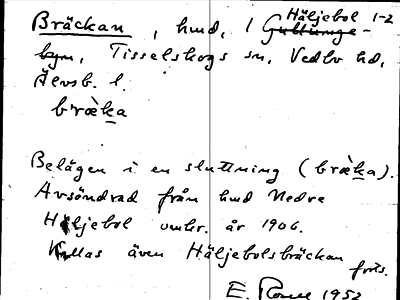 Häljebol 1-2
Bräckan, hmd, i Gullunge-
byn, Tisselskogs sn, Vedbo hd,
Älvsb. l.
bræ̀ka
Belägen i en sluttning (bræ̀ka).
Avsöndrad från hmd Nedre
Häljebol omkr. år 1906.
Kallas även Häljebolsbräckan
forts.
E. 1952